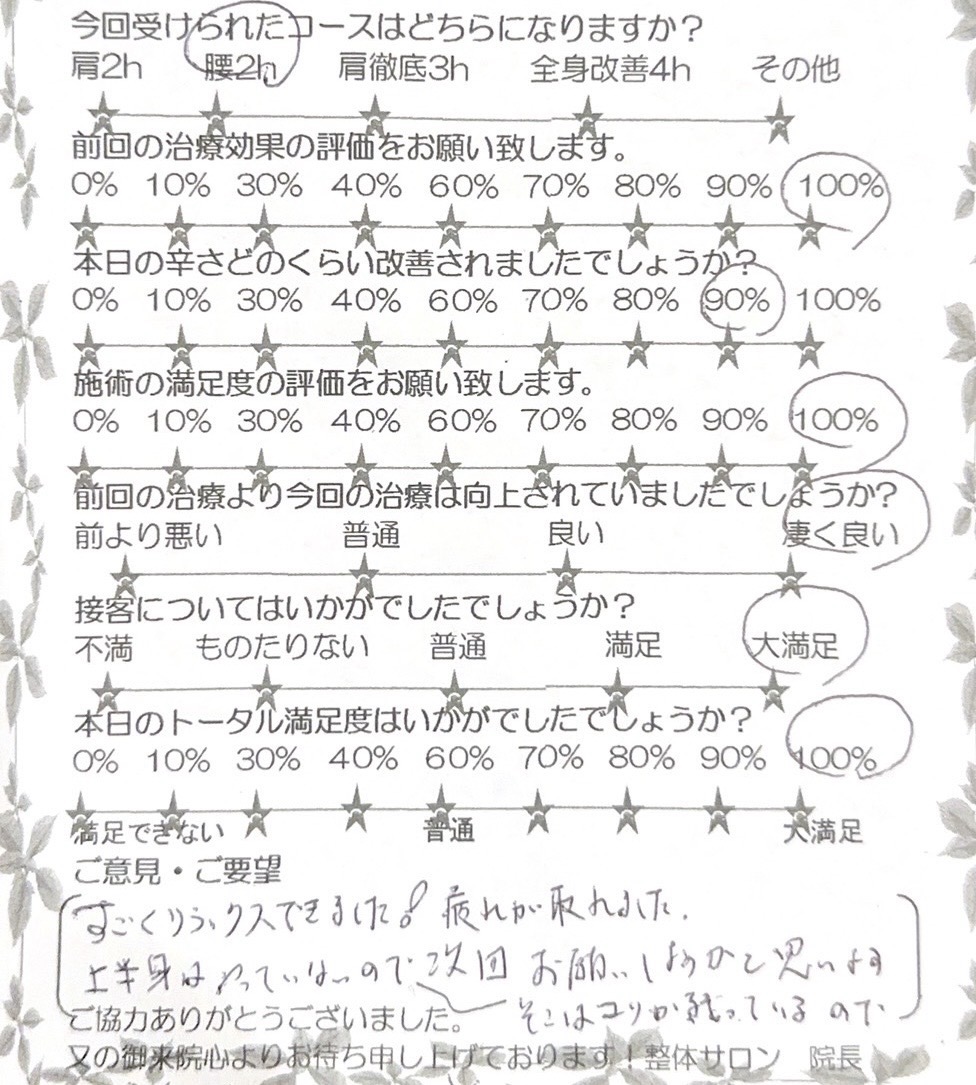 今回受けられたコースはどちらになりますか？
肩2h 腰2h 肩徹底3h 全身改善4h その他
前回の治療効果の評価をお願い致します。
0% 10% 30% 40% 60% 70% 80% 90% 100%
本日の辛さどのくらい改善されましたでしょうか？
0% 10% 30% 40% 60% 70% 80% 90% 100%
施術の満足度の評価をお願い致します。
0% 10% 30% 40% 60% 70% 80% 90% 100%
前回の治療より今回の治療は向上されていましたでしょうか？
前より悪い 普通 良い 凄く良い
接客についてはいかがでしたでしょうか？
不満 ものたりない 普通 満足 大満足
本日のトータル満足度はいかがでしたでしょうか？
0% 10% 30% 40% 60% 70% 80% 90% 100%
満足できない 普通 大満足
ご意見・ご要望
すごくリラックスできました! 疲れが取れました.
上半身はやっていないので 次回 お願いしようかと思います
そこはコリが残っているので
ご協力ありがとうございました。
又の御来院心よりお待ち申し上げております！整体サロン 院長